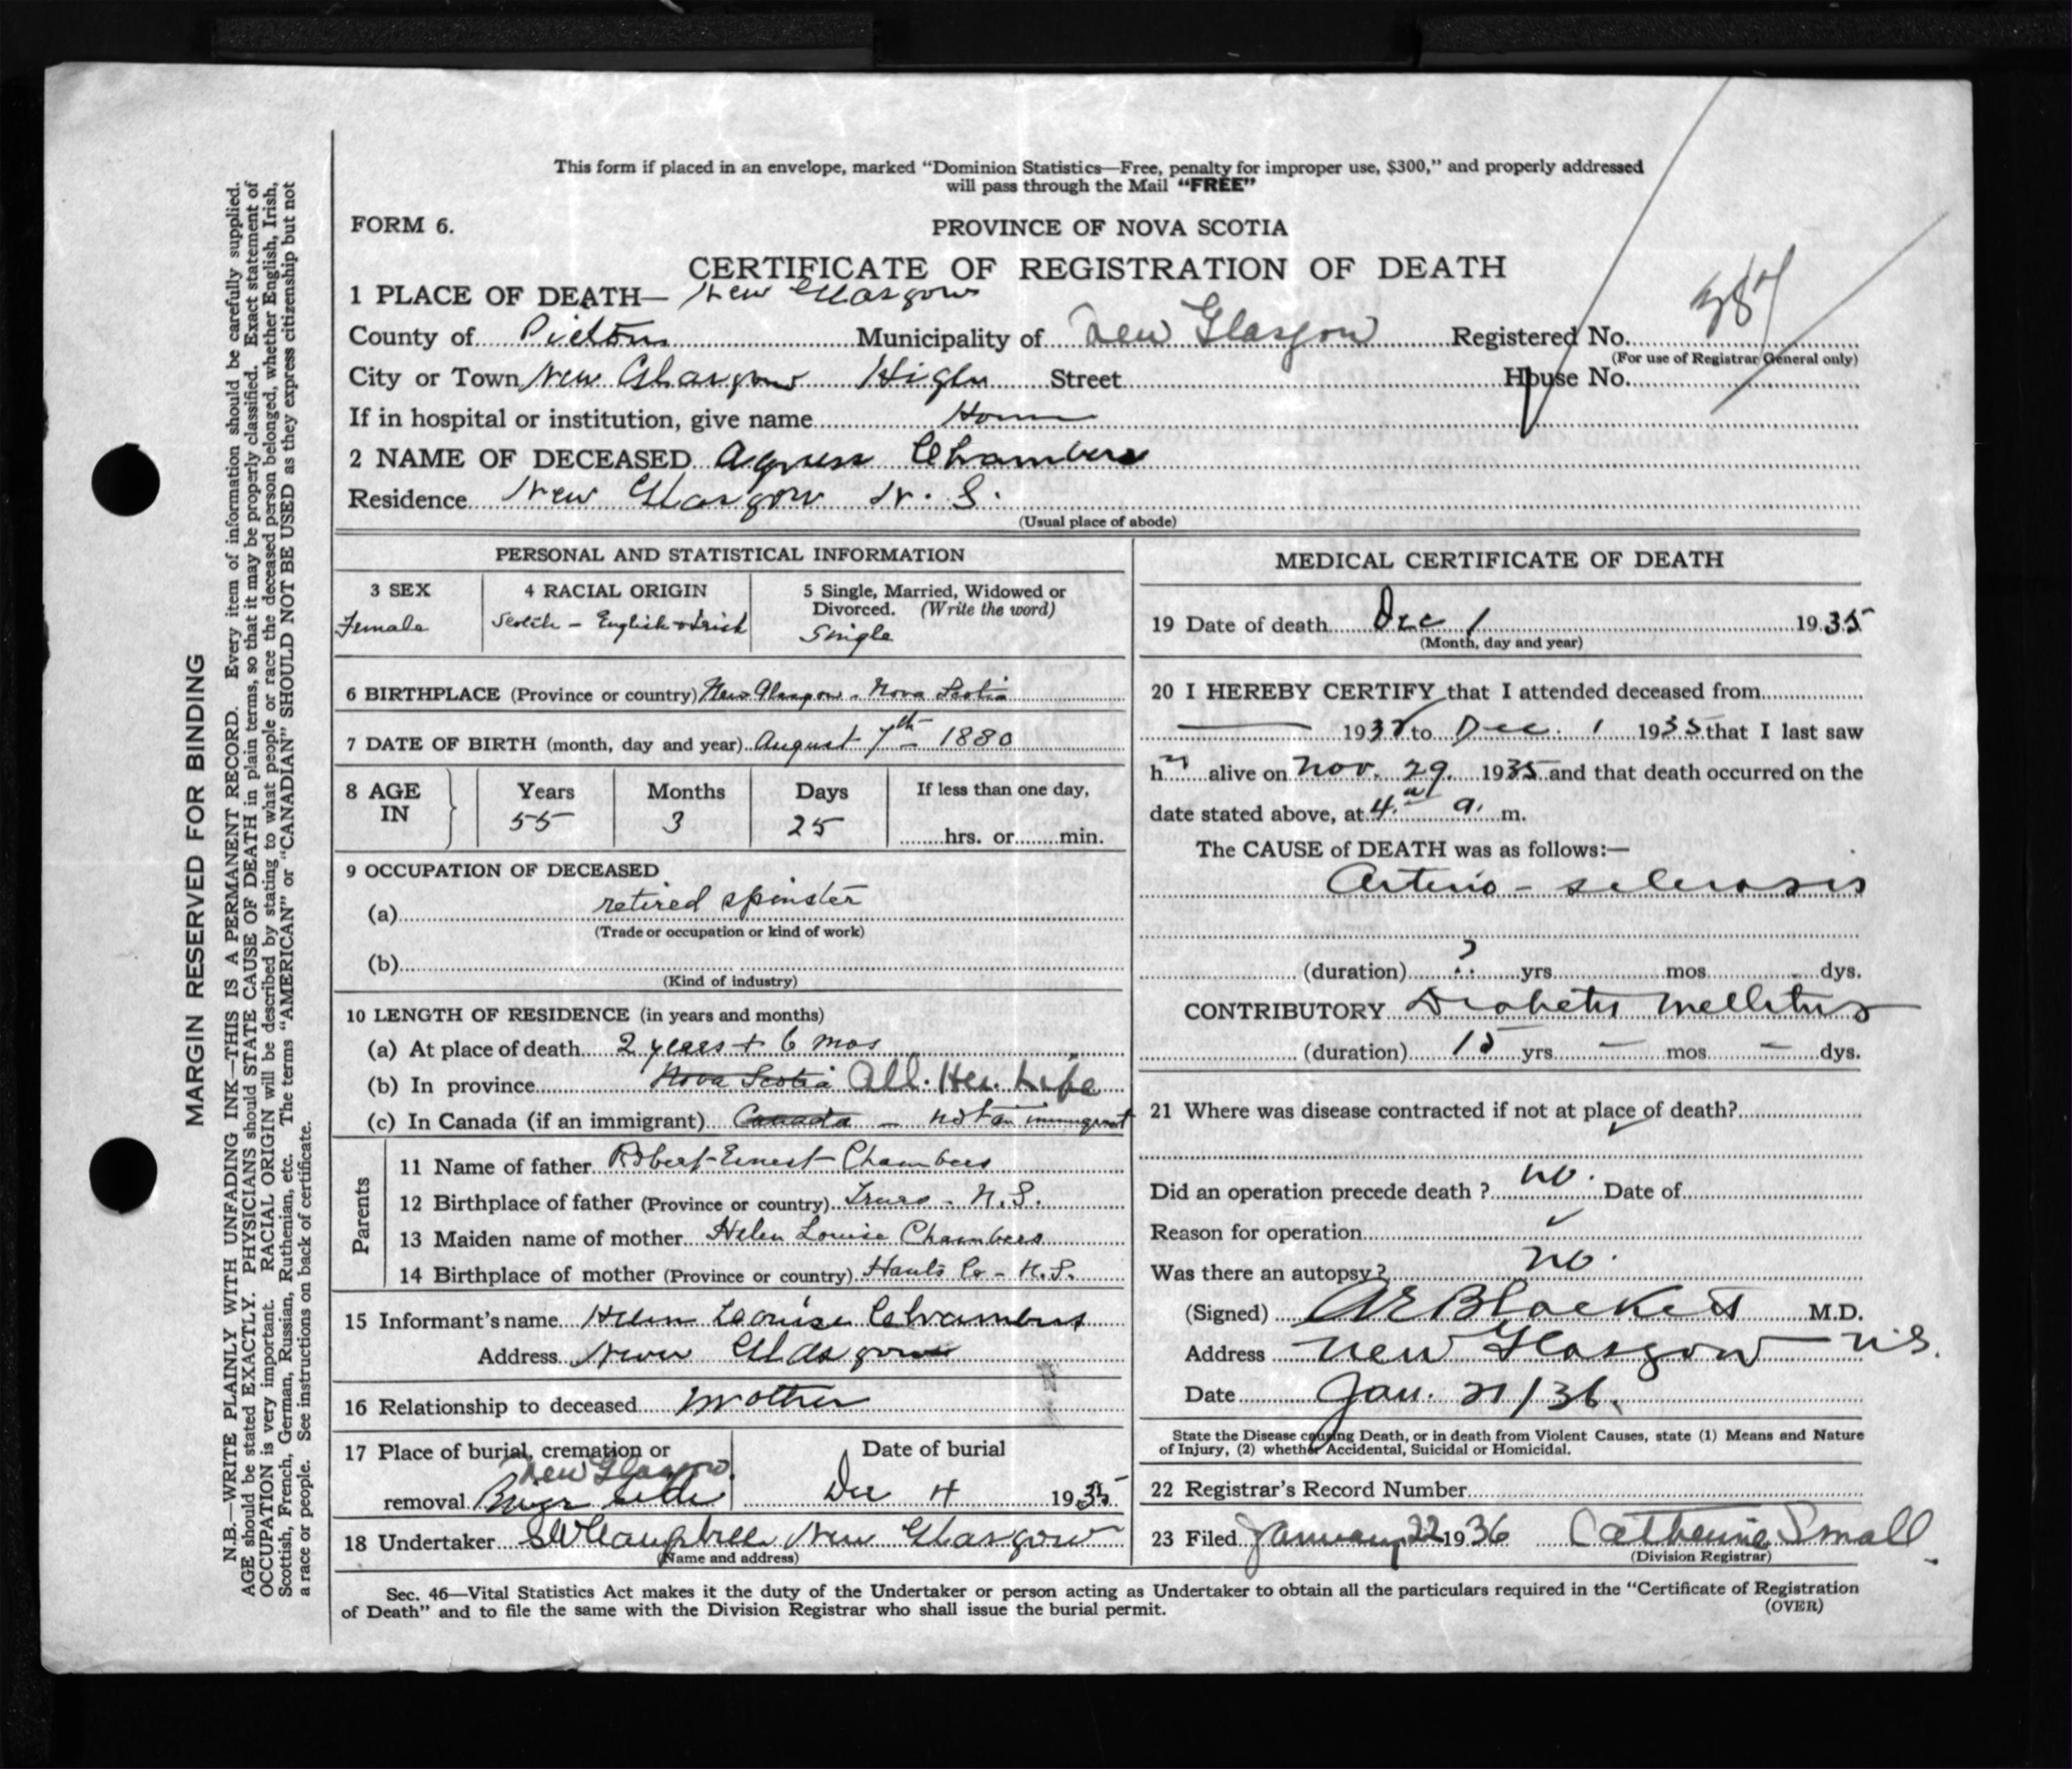 This form if placed in an envelope, marked “Dominion Statistics—Free, penalty for improper use, $300,” and properly addressed
will pass through the Mail “FREE”
FORM 6.
PROVINCE OF NOVA SCOTIA
CERTIFICATE OF REGISTRATION OF DEATH
1 PLACE OF DEATH— New Glasgow
County of Pictou Municipality of New Glasgow Registered No.
(For use of Registrar General only)
City or Town New Glasgow High Street House No.
If in hospital or institution, give name Home
2 NAME OF DECEASED Agness Chambers
Residence New Glasgow N. S.
(Usual place of abode)
PERSONAL AND STATISTICAL INFORMATION
3 SEX
Female
4 RACIAL ORIGIN
Scotch - English & Irish
5 Single, Married, Widowed or
Divorced. (Write the word)
Single
6 BIRTHPLACE (Province or country) New Glasgow - Nova Scotia
7 DATE OF BIRTH (month, day and year) August 7th - 1880
8 AGE IN
Years Months Days If less than one day,
55 3 25 hrs. or min.
9 OCCUPATION OF DECEASED
(a) retired spinster
(Trade or occupation or kind of work)
(b)
(Kind of industry)
10 LENGTH OF RESIDENCE (in years and months)
(a) At place of death 2 years + 6 mos
(b) In province Nova Scotia All. Her. Life
(c) In Canada (if an immigrant) Canada - not an immigrant
Parents
11 Name of father Robert Ernest Chambers
12 Birthplace of father (Province or country) Truro - N.S.
13 Maiden name of mother Helen Louise Chambers
14 Birthplace of mother (Province or country) Hants Co - N.S.
15 Informant's name Helen Louise Chambers
Address New Glasgow
16 Relationship to deceased Mother
17 Place of burial, cremation or Date of burial
New Glasgow
removal River Side Dec 4 1935
18 Undertaker New Glasgow
(Name and address)
MEDICAL CERTIFICATE OF DEATH
19 Date of death Dec 1 1935
(Month, day and year)
20 I HEREBY CERTIFY that I attended deceased from
to Dec. 1 1935 that I last saw
h alive on Nov. 29. 1935 and that death occurred on the
date stated above, at 4 a. m.
The CAUSE of DEATH was as follows:—
Arterio - sclerosis
(duration) ? yrs. mos. dys.
CONTRIBUTORY Diabetes Mellitus
(duration) 15 yrs. — mos. — dys.
21 Where was disease contracted if not at place of death?
Did an operation precede death ? no. Date of
Reason for operation
Was there an autopsy? no.
(Signed) AE Blackett M.D.
Address New Glasgow N.S.
Date Jan. 21/36.
State the Disease causing Death, or in death from Violent Causes, state (1) Means and Nature
of Injury, (2) whether Accidental, Suicidal or Homicidal.
22 Registrar's Record Number
23 Filed January 22 1936 Catherine Small
(Division Registrar)
Sec. 46—Vital Statistics Act makes it the duty of the Undertaker or person acting as Undertaker to obtain all the particulars required in the “Certificate of Registration
of Death” and to file the same with the Division Registrar who shall issue the burial permit.
(OVER)
MARGIN RESERVED FOR BINDING
N.B.—WRITE PLAINLY WITH UNFADING INK—THIS IS A PERMANENT RECORD. Every item of information should be carefully supplied.
AGE should be stated EXACTLY. PHYSICIANS should STATE CAUSE OF DEATH in plain terms, so that it may be properly classified. Exact statement of
OCCUPATION is very important. RACIAL ORIGIN will be described by stating to what people or race the deceased person belonged, whether English, Irish,
Scottish, French, German, Russian, Ruthenian, etc. The terms “AMERICAN” or “CANADIAN” SHOULD NOT BE USED as they express citizenship but not
a race or people. See instructions on back of certificate.